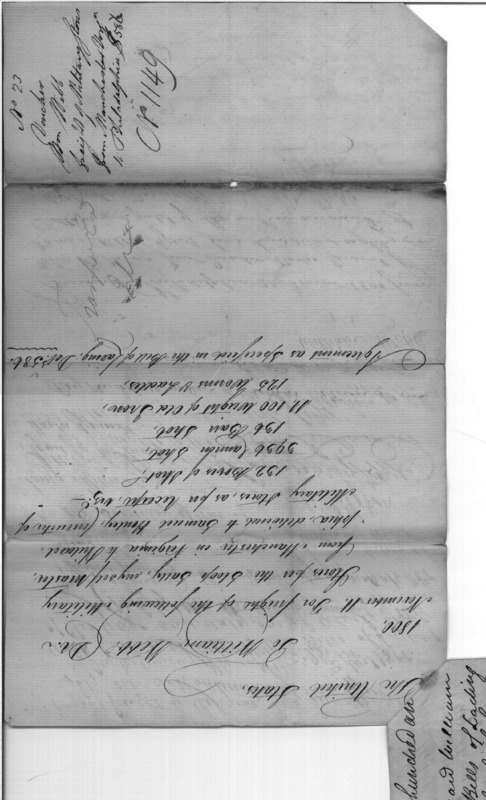 The United States,
To William Webb. Dr.
1800.
November 11. For freight of the following Military
Stores, per the Sloop Sally, myself Master,
from Manchester in Virginia to Philadel-
phia delivered to Samuel Henley,
Military Stores, as per receipt, viz.
132 Boxes of Shot,
3936 Cannon Shot,
136 Barr Shot,
11.100 Weight of Old Iron,
123 Worms & Ladles,
Agreement as Specified in the Bill of Lading, Doll. 586.
No 23
Voucher
Wm Webb
freight of Military Stores
from Manchester
to Philadelphia $586
No 1149
hundred and
and William
Bills of Lading